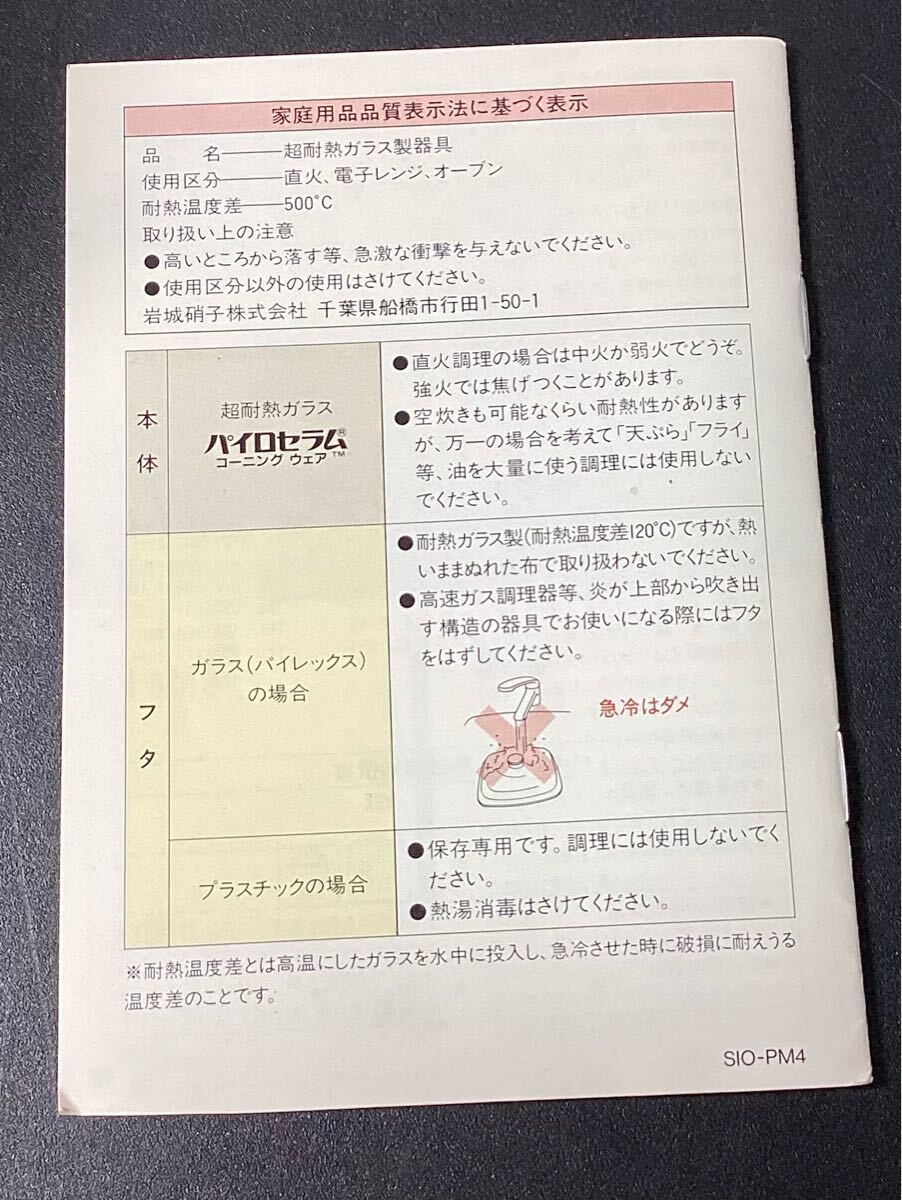 家庭用品品質表示法に基づく表示
品　　名――超耐熱ガラス製器具
使用区分――直火、電子レンジ、オーブン
耐熱温度差――500℃
取り扱い上の注意
●高いところから落す等、急激な衝撃を与えないでください。
●使用区分以外の使用はさけてください。
岩城硝子株式会社 千葉県船橋市行田1-50-1
本体
超耐熱ガラス
パイロセラム®
コーニング ウェア™
●直火調理の場合は中火か弱火でどうぞ。
強火では焦げつくことがあります。
●空炊きも可能なくらい耐熱性があります
が、万一の場合を考えて「天ぷら」「フライ」
等、油を大量に使う調理には使用しない
でください。
フタ
ガラス(パイレックス)
の場合
●耐熱ガラス製(耐熱温度差120℃)ですが、熱
いままぬれた布で取り扱わないでください。
●高速ガス調理器等、炎が上部から吹き出
す構造の器具でお使いになる際にはフタ
をはずしてください。
急冷はダメ
プラスチックの場合
●保存専用です。調理には使用しないでく
ださい。
●熱湯消毒はさけてください。
※耐熱温度差とは高温にしたガラスを水中に投入し、急冷させた時に破損に耐えうる
温度差のことです。
SIO-PM4